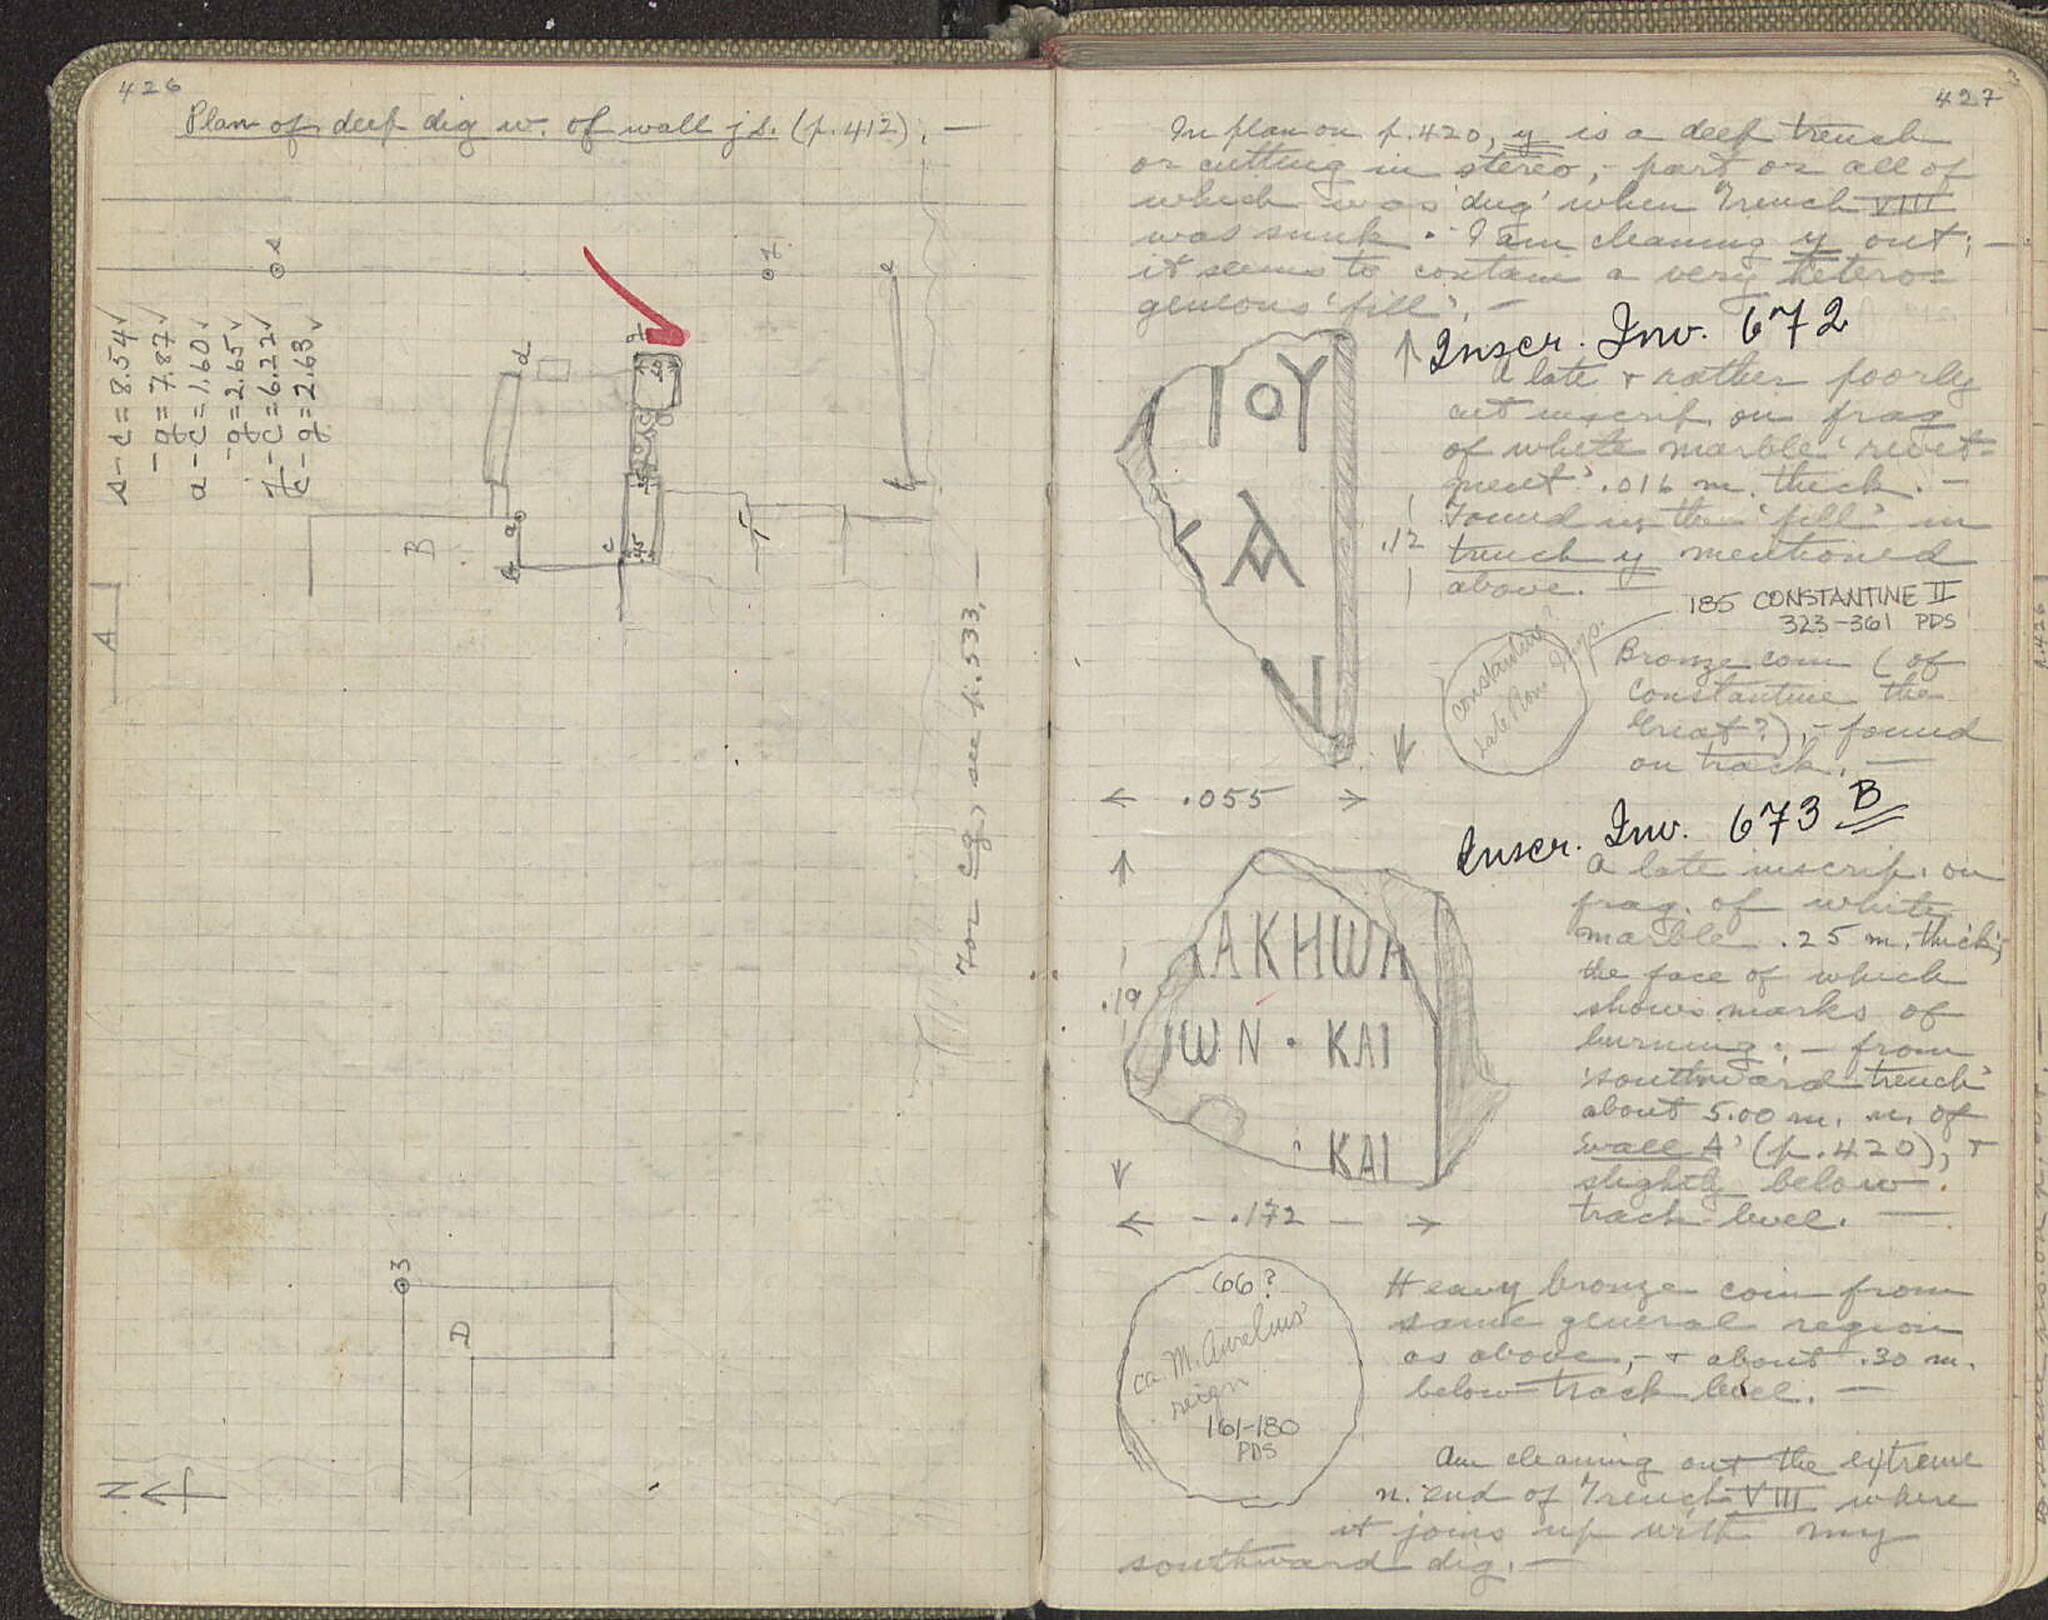 426
Plan of deep dig w. of wall js. (p. 412). —
s - c = 8.54 ✓
- g = 7.87 ✓
a - c = 1.60 ✓
- g = 2.65 ✓
- c = 6.22 ✓
- g = 2.63 ✓
s
e
d
g
.50
f
a
b
c
.45
B
A
For Eg, see p. 533. —
3
D
N
427
In plan on p. 420, y is a deep trench
or cutting in stereo, - part or all of
which was 'dug' when Trench VIII
was sunk. I am cleaning y out; —
it seems to contain a very hetero=
geneous 'fill'. —
Inscr. Inv. 672
A late + rather poorly
cut inscrip. on frag
of white marble 'revet=
ment' .016 m. thick. —
Found in the 'fill' in
trench y mentioned
above. —
ΙΟΥ
ΚΑ
Ν
.12
.055
185 CONSTANTINE II
323-361 PDS
Constantine?
Late Rom Imp.
Bronze coin (of
Constantine the
Great?), - found
on track. —
Inscr. Inv. 673 B
A late inscrip. on
frag. of white
marble .25 m. thick;
the face of which
shows marks of
burning; - from
'southward trench'
about 5.00 m. n. of
'wall A' (p. 420), +
slightly below
track level. —
ΑΚΗWΑ
ΙWΝ · ΚΑΙ
· ΚΑΙ
.19
.172
66?
ca. M. Aurelius'
reign
161-180
PDS
Heavy bronze coin from
same general region
as above, - + about .30 m.
below track level. —
Am cleaning out the extreme
n. end of Trench VIII where
it joins up with my
southward dig. —
p. 426